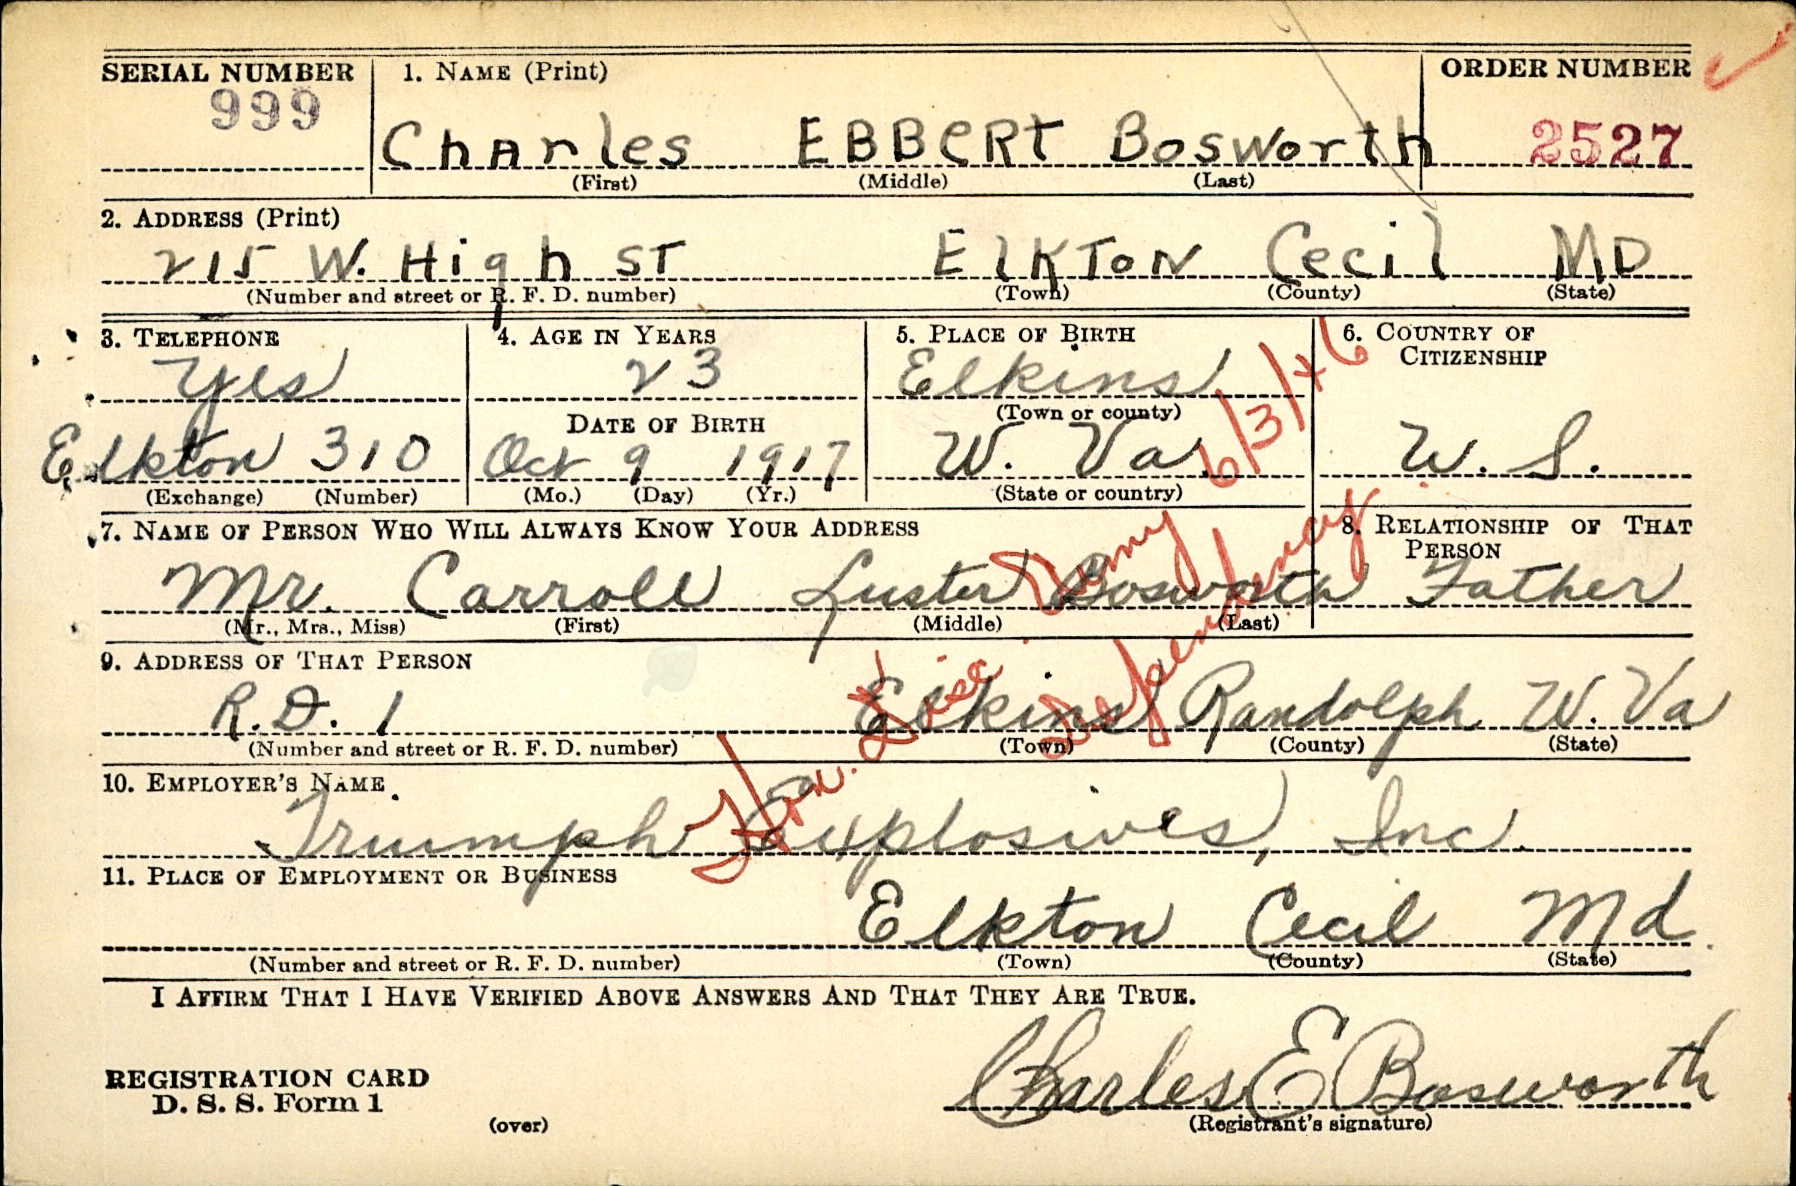 SERIAL NUMBER 1. NAME (Print) ORDER NUMBER
999 Charles EBBERT Bosworth 2527
(First) (Middle) (Last)
2. ADDRESS (Print)
215 W. High ST ElKTON Cecil MD
(Number and street or R. F. D. number) (Town) (County) (State)
3. TELEPHONE 4. AGE IN YEARS 5. PLACE OF BIRTH 6. COUNTRY OF CITIZENSHIP
Yes 23 Elkins
(Town or county)
DATE OF BIRTH
Elkton 310 Oct 9 1917 W. Va. U. S.
(Exchange) (Number) (Mo.) (Day) (Yr.) (State or country)
7. NAME OF PERSON WHO WILL ALWAYS KNOW YOUR ADDRESS 8. RELATIONSHIP OF THAT PERSON
Mr. Carroll Luster Bosworth Father
(Mr., Mrs., Miss) (First) (Middle) (Last)
9. ADDRESS OF THAT PERSON
R.D. 1 Elkins Randolph W. Va
(Number and street or R. F. D. number) (Town) (County) (State)
10. EMPLOYER'S NAME
Triumph Explosives, Inc.
11. PLACE OF EMPLOYMENT OR BUSINESS
Elkton Cecil Md.
(Number and street or R. F. D. number) (Town) (County) (State)
I AFFIRM THAT I HAVE VERIFIED ABOVE ANSWERS AND THAT THEY ARE TRUE.
REGISTRATION CARD
D. S. S. Form 1
(over)
Charles E Bosworth
(Registrant's signature)
Hon. Disc. Army 6/3/46
Dependency